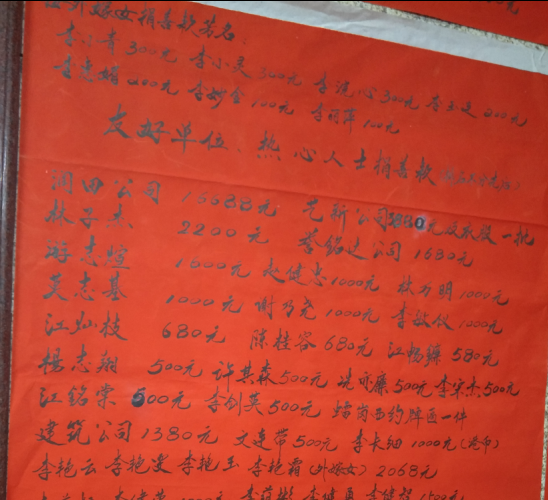 外嫁女捐喜款芳名：
李小青300元 李小灵300元 李沉心300元 李玉 200元
李 娟200元 李妙金100元 李丽萍100元
友好单位、热心人士捐喜款
润田公司 16688元 新公司1880元 一批
林子杰 2200元 李铭达公司 1680元
游志煊 1000元 赵健忠1000元 林万明1000元
吴志基 1000元 谢乃尧1000元 李敏仪1000元
江灿枝 680元 陈桂容680元 江畅 580元
杨志翔 500元 许其森500元 冼亦廉500元 李荣杰500元
江铭棠 500元 李剑英500元 一件
建筑公司1380元 文连带500元 李卡细1000元(港币)
李艳云 李艳雯 李艳玉 李艳霜(外嫁女) 2068元